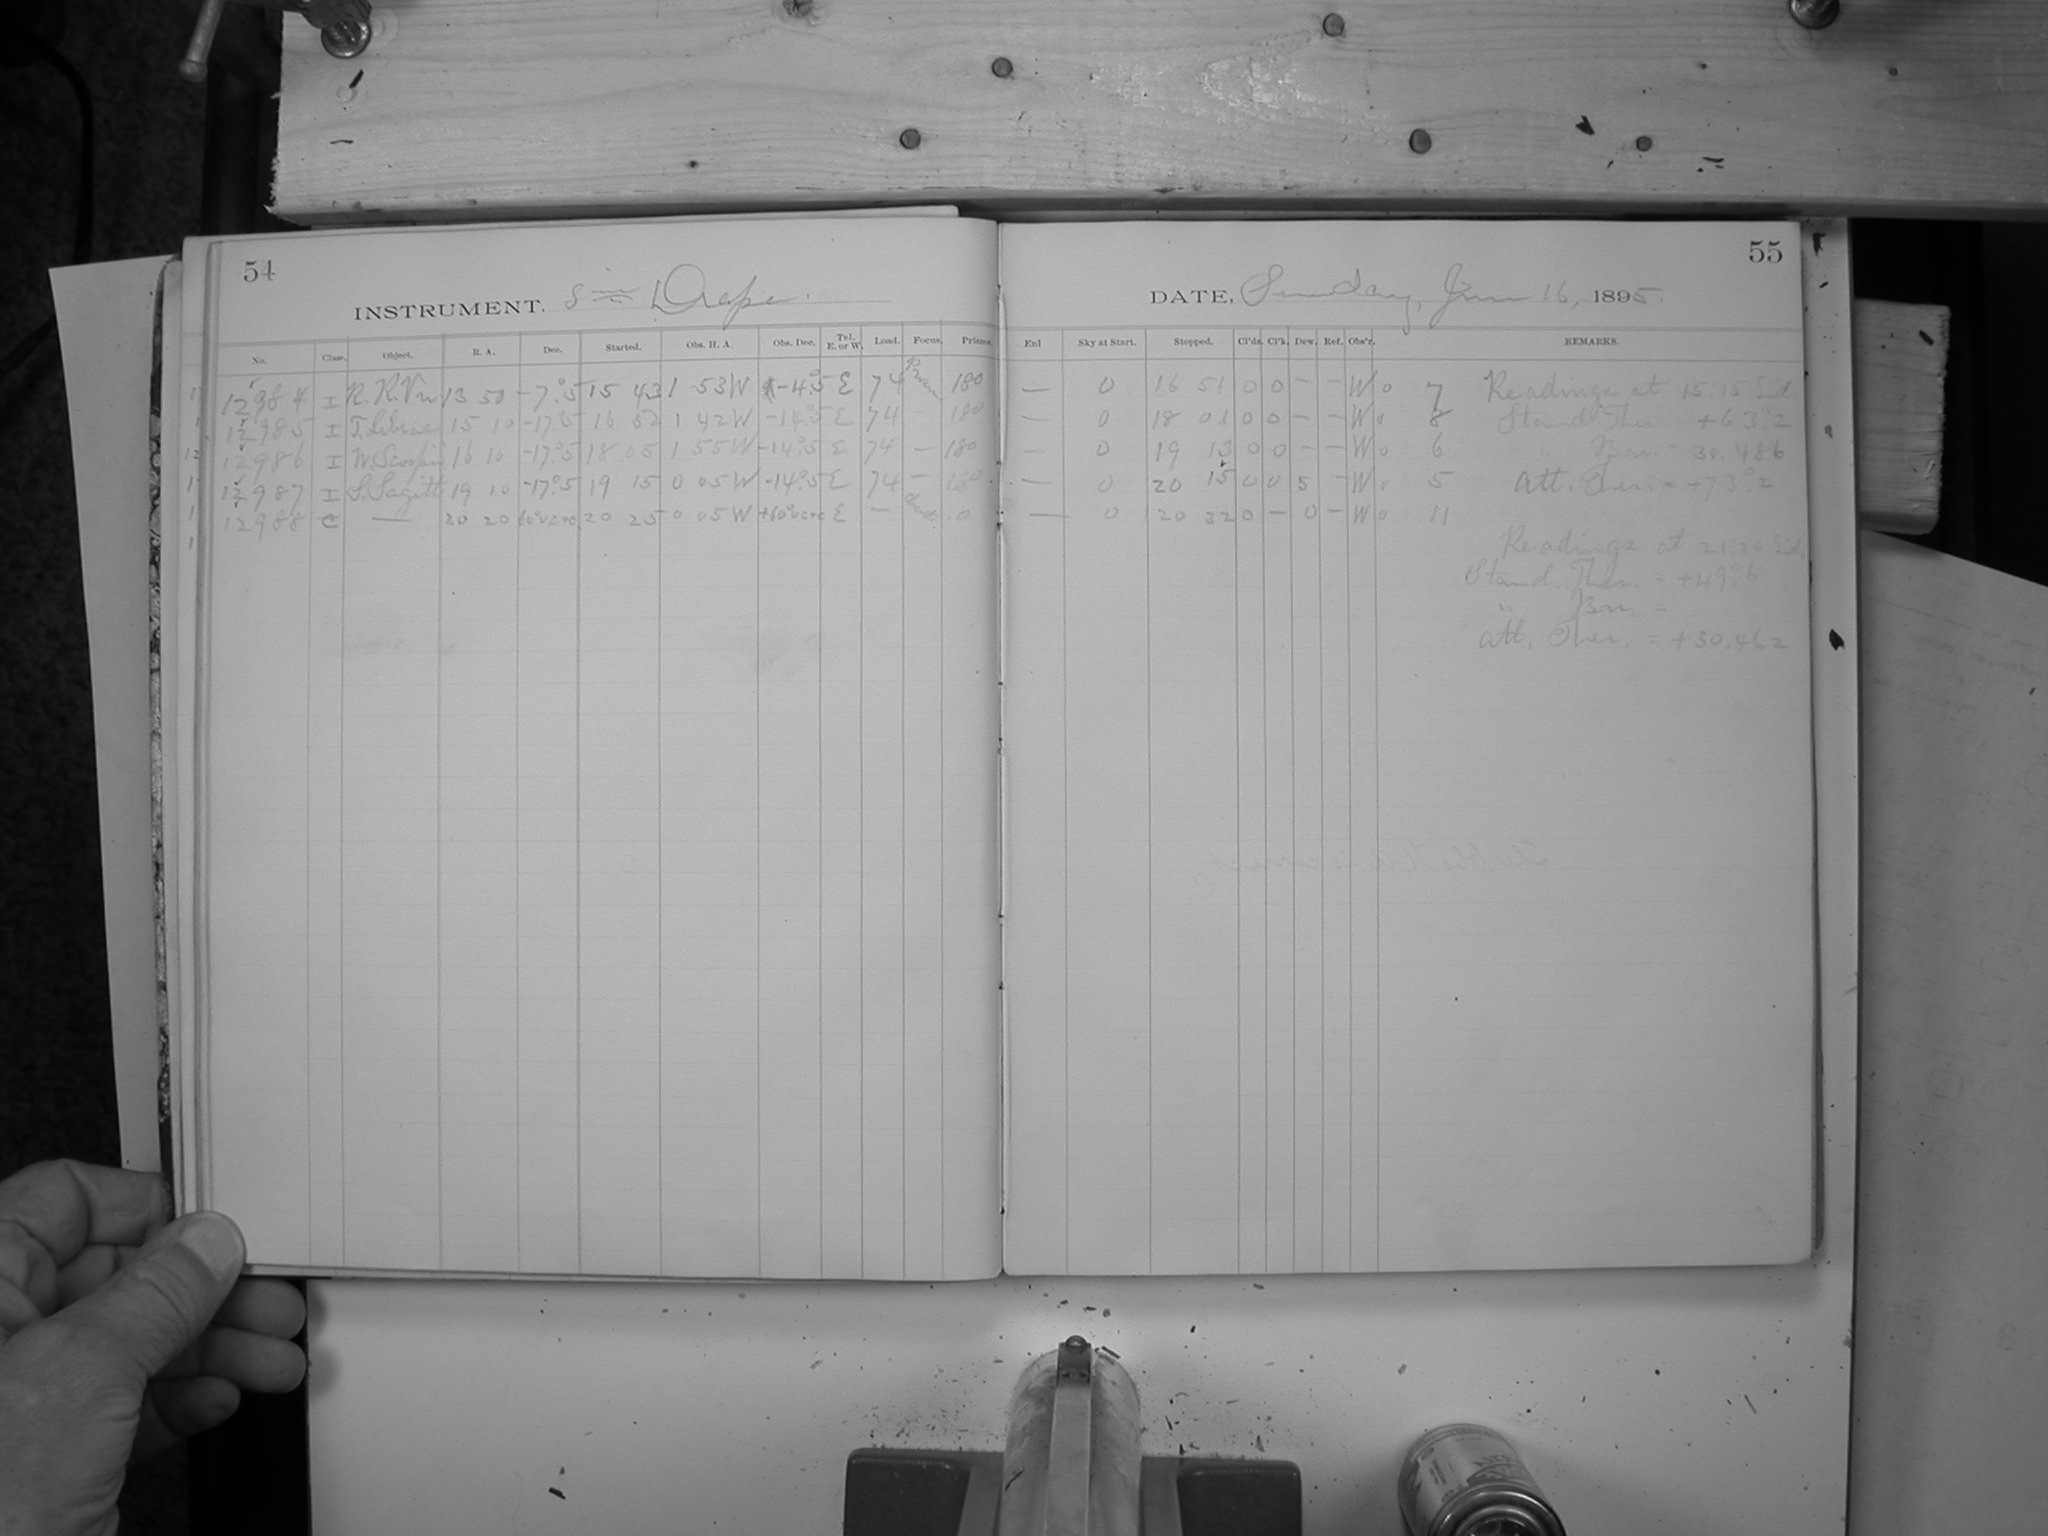 54
INSTRUMENT, 8 in Draper.
No. Class. Object. R. A. Dec. Started. Obs. H. A. Obs. Dec. Tel. E. or W. Load. Focus. Prisms.
12984 I R.R.Vir 13 50 -7°.5 15 43 1 53 W -4°.5 E 74 180
12985 I T.Librae 15 10 -17°.5 16 52 1 42 W -14°.5 E 74 — 180
12986 I W.Scorpii 16 10 -17°.5 18 05 1 55 W -14°.5 E 74 — 180
12987 I S.Sagitt 19 10 -17°.5 19 15 0 05 W -14°.5 E 74 — 180
12988 C — 20 20 20 25 0 05 W E — 0
55
DATE, Sunday, June 16, 1895.
Exl Sky at Start. Stopped. Cl'ds. Cl'k. Dew. Ref. Obs'r. REMARKS.
— 0 16 51 0 0 — — W 0 7 Readings at 15.15 Sid.
— 0 18 03 0 0 — — W 0 8 Stand Ther +63°.2
— 0 19 13 0 0 — — W 0 6 " Bar = 30.486
— 0 20 15 0 0 5 — W 0 5 Att. Ther. = +73°.2
— 0 20 32 0 — 0 — W 0 11
Readings at 21.20 Sid.
Stand. Ther. = +49°.6
" Bar. =
Att. Ther. = +30.462